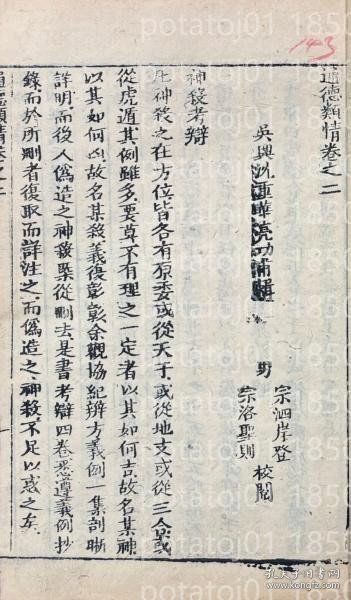 143
通德類情卷之二
吳興沈重華亮功甫輯
男
宗泗岸登
宗洛聖則
校閱
神殺考辯
凡神殺之在方位皆各有原委或從天干或從地支或從三合某或
從虎遁其例雖多要莫不有理之一定者以其如何吉故名某神
以其如何凶故名某殺義復彰彰余觀協紀辨方義例一集剖晰
詳明而後人偽造之神殺槩從刪去是書考辯四卷悉遵義例抄
錄而於所刪者復取而詳注之而偽造之神殺不足以惑之矣
通德類情卷之二
potatoj01 1850
孔夫子旧书网